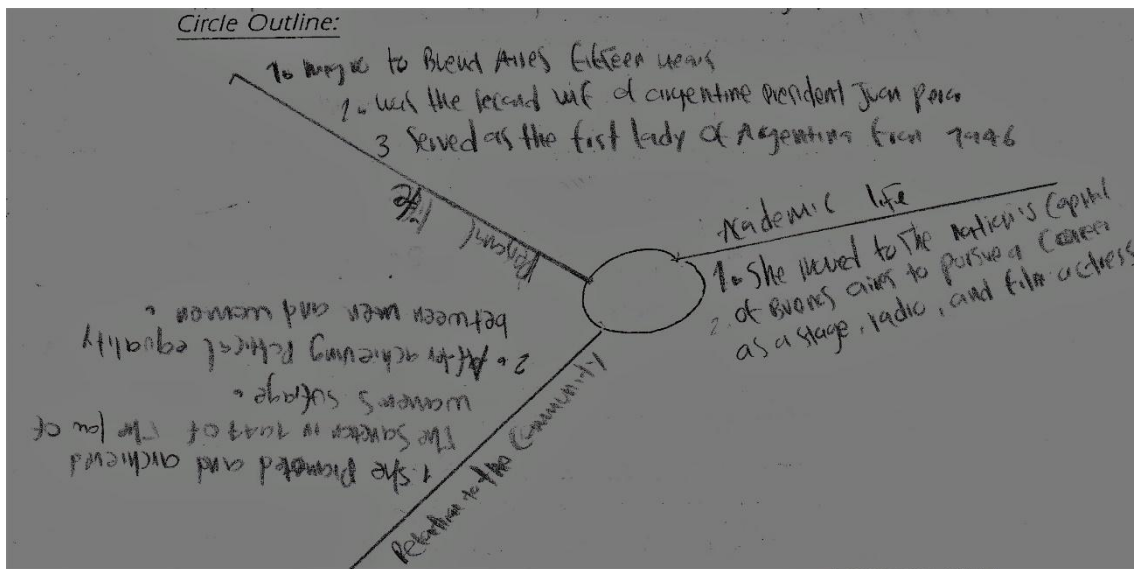 Circle Outline:
1. to Buend Aires fifteen years
2. was the second wif of argentine president Juan peron
3 Served as the first lady of Argentina from 1946
Personal life
Academic life
1. She moved to the nation's Capital
2. of Buons aires to pursue a Career
as a stage, radio, and film actress
Relation to the Community
1. She promoted and archieved
the in 1947 of the law of
women's sufrage.
2. After achieving Political equality
between men and women.